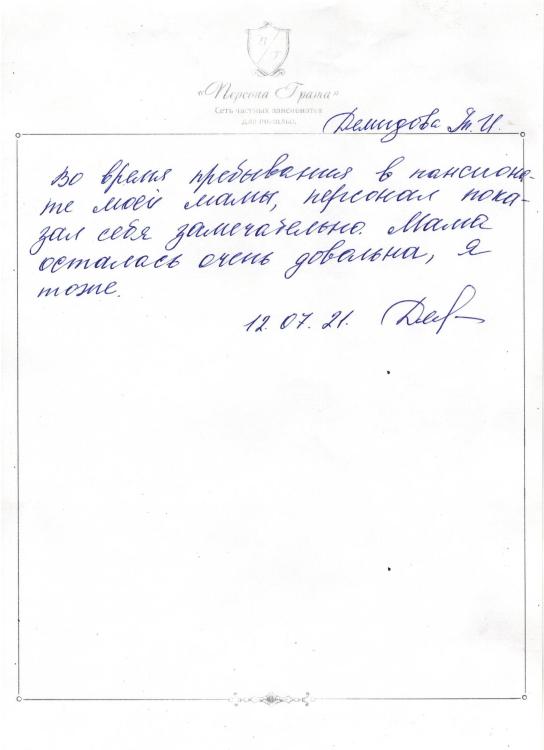 «Персона Грата»
Сеть частных пансионатов
Демидова Т.И.
Во время пребывания в пансиона-
те моей мамы, персонал пока-
зал себя замечательно. Мама
осталась очень довольна, я
тоже.
12.07.21.